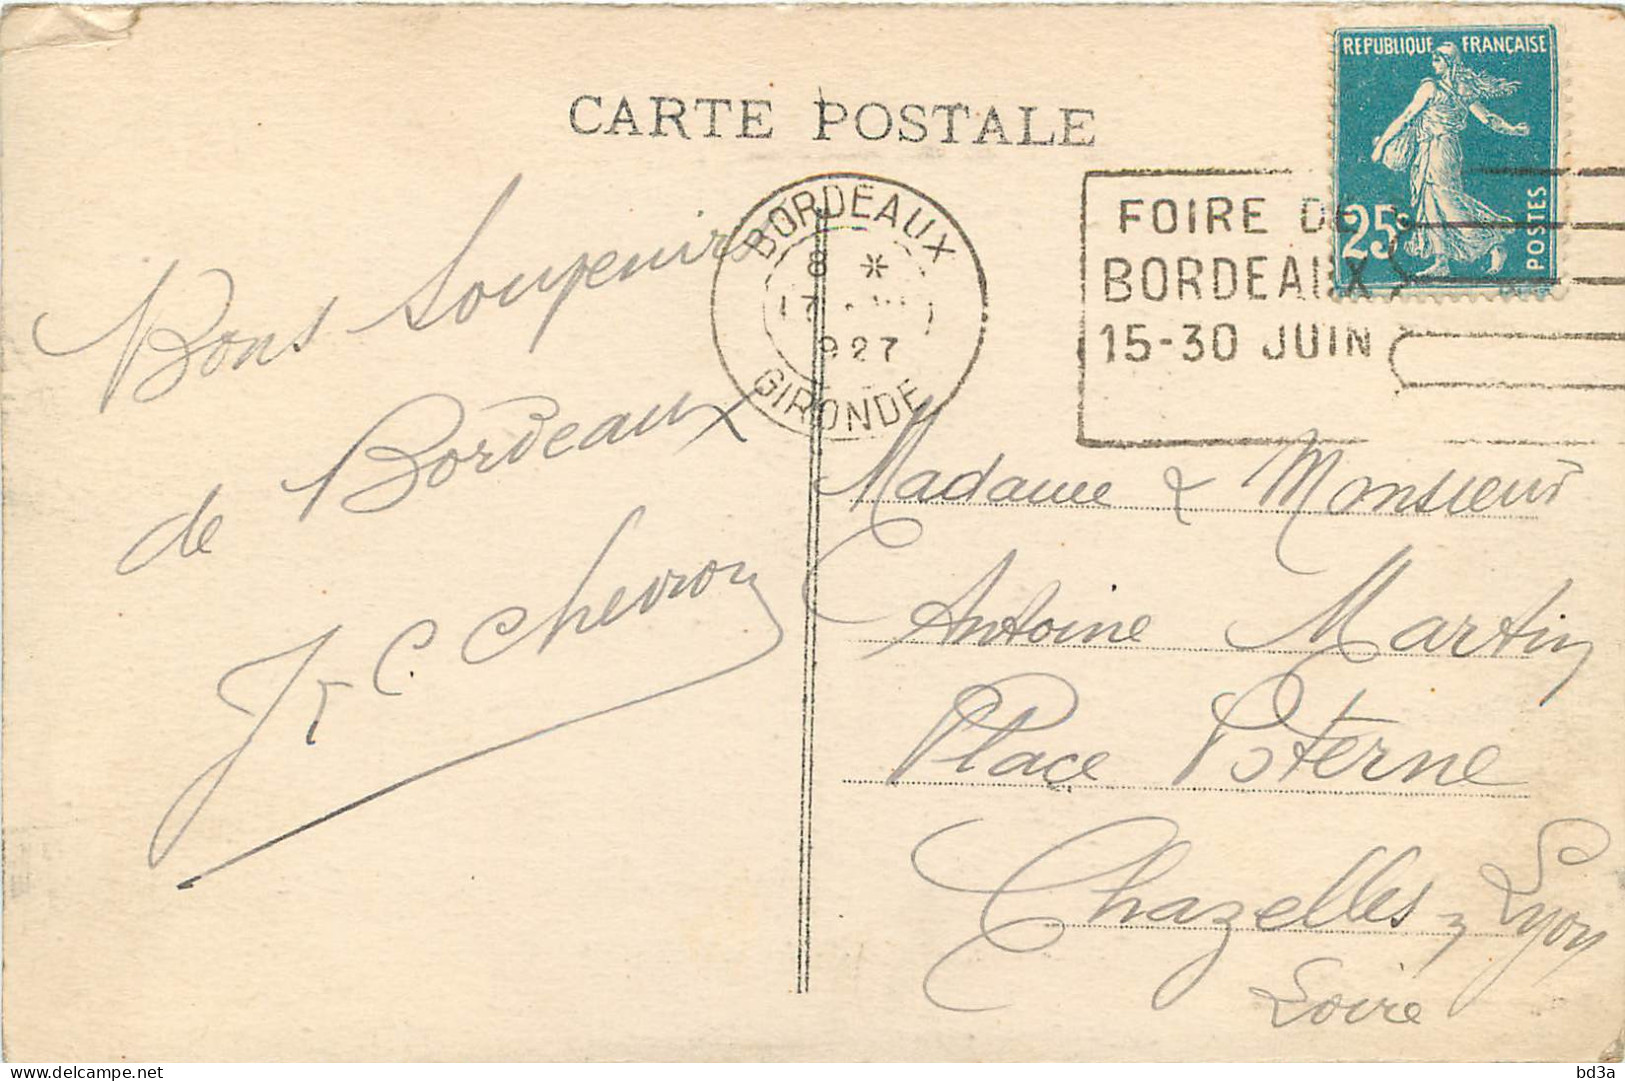 CARTE POSTALE
REPUBLIQUE FRANÇAISE
25c
POSTES
BORDEAUX
8 *
17
1927
GIRONDE
FOIRE DE
BORDEAUX
15-30 JUIN
Bons Souvenirs
de Bordeaux
J & C. Chevron
Madame & Monsieur
Antoine Martin
Place Poterne
Chazelles s/ Lyon
Loire
www.delcampe.net
bd3a